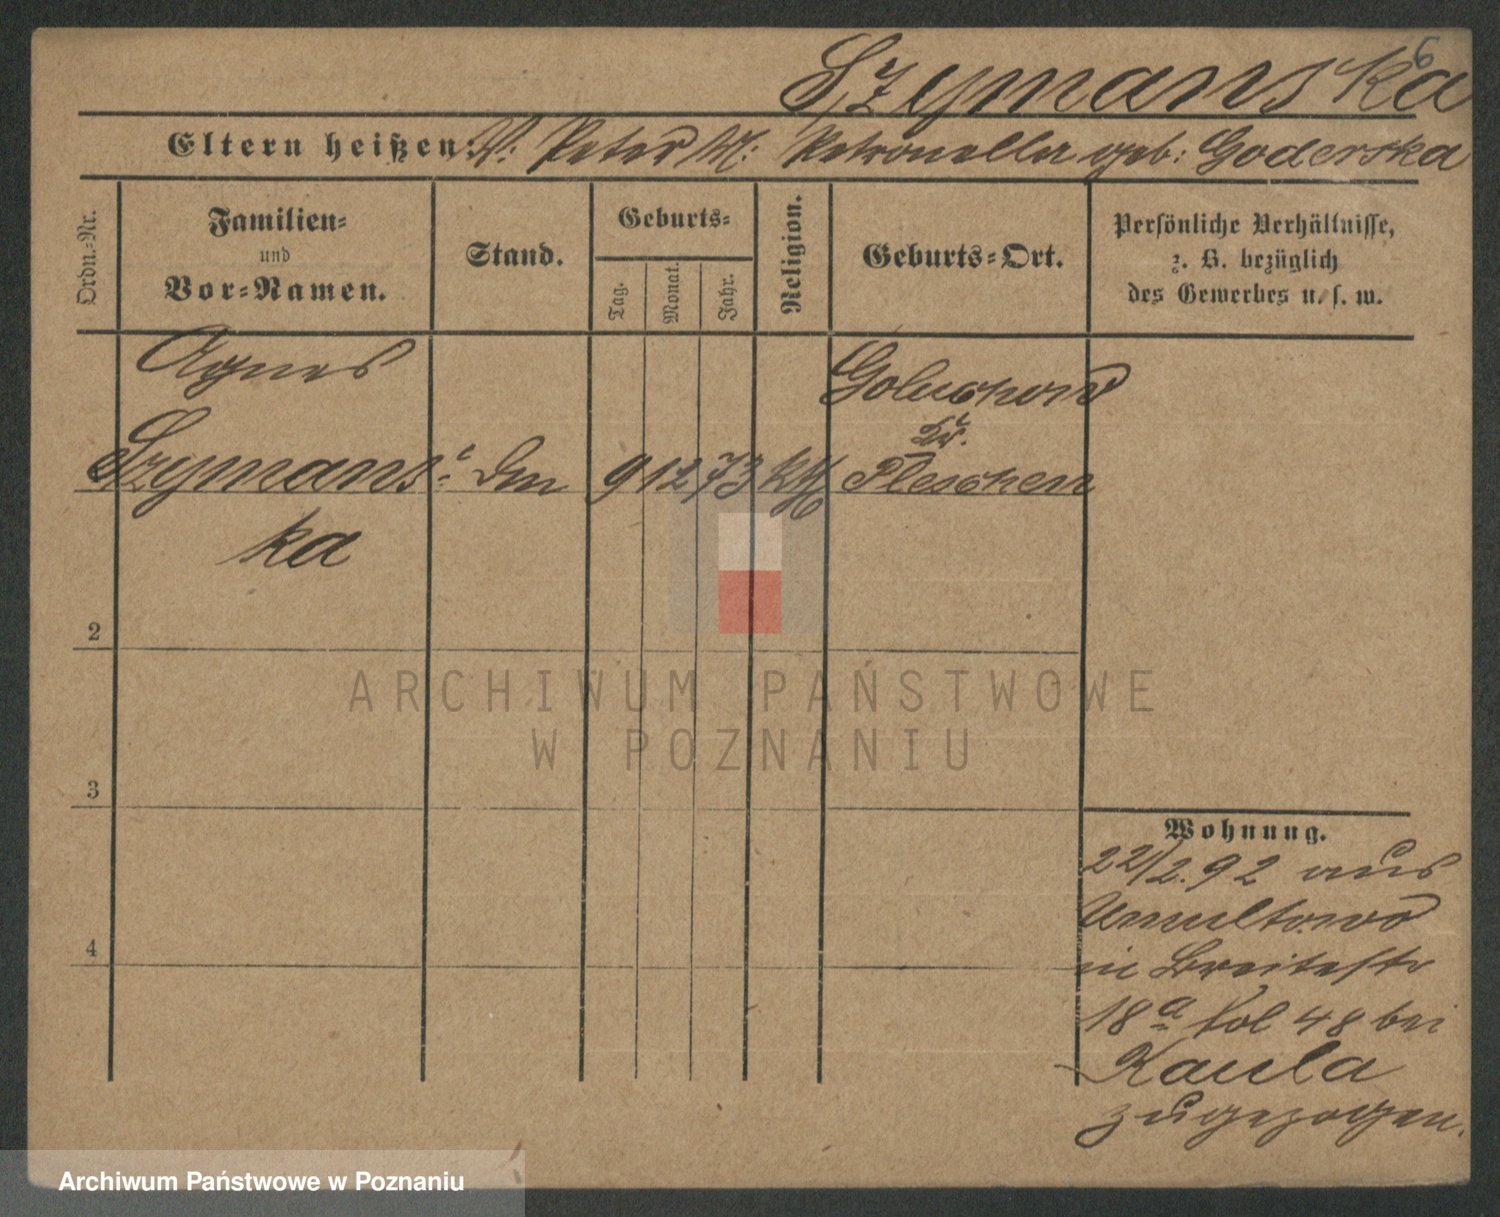 6
Szymanska
Eltern heißen: V: Peter M: Petronella geb: Goderska
Ordn.-Nr.
Familien-
und
Vor-Namen.
Stand.
Geburts-
Tag.
Monat.
Jahr.
Religion.
Geburts-Ort.
Persönliche Verhältnisse,
z. B. bezüglich
des Gewerbes u. s. w.
Agnes
Szymans-
ka
9 12 73 kth
Goluchow
Kr.
Pleschen
2
3
4
Wohnung.
22/2. 92 aus
Umultowo
in Breitestr
18a fol 48 bei
Kaula
zugezogen.
ARCHIWUM PAŃSTWOWE
W POZNANIU
Archiwum Państwowe w Poznaniu